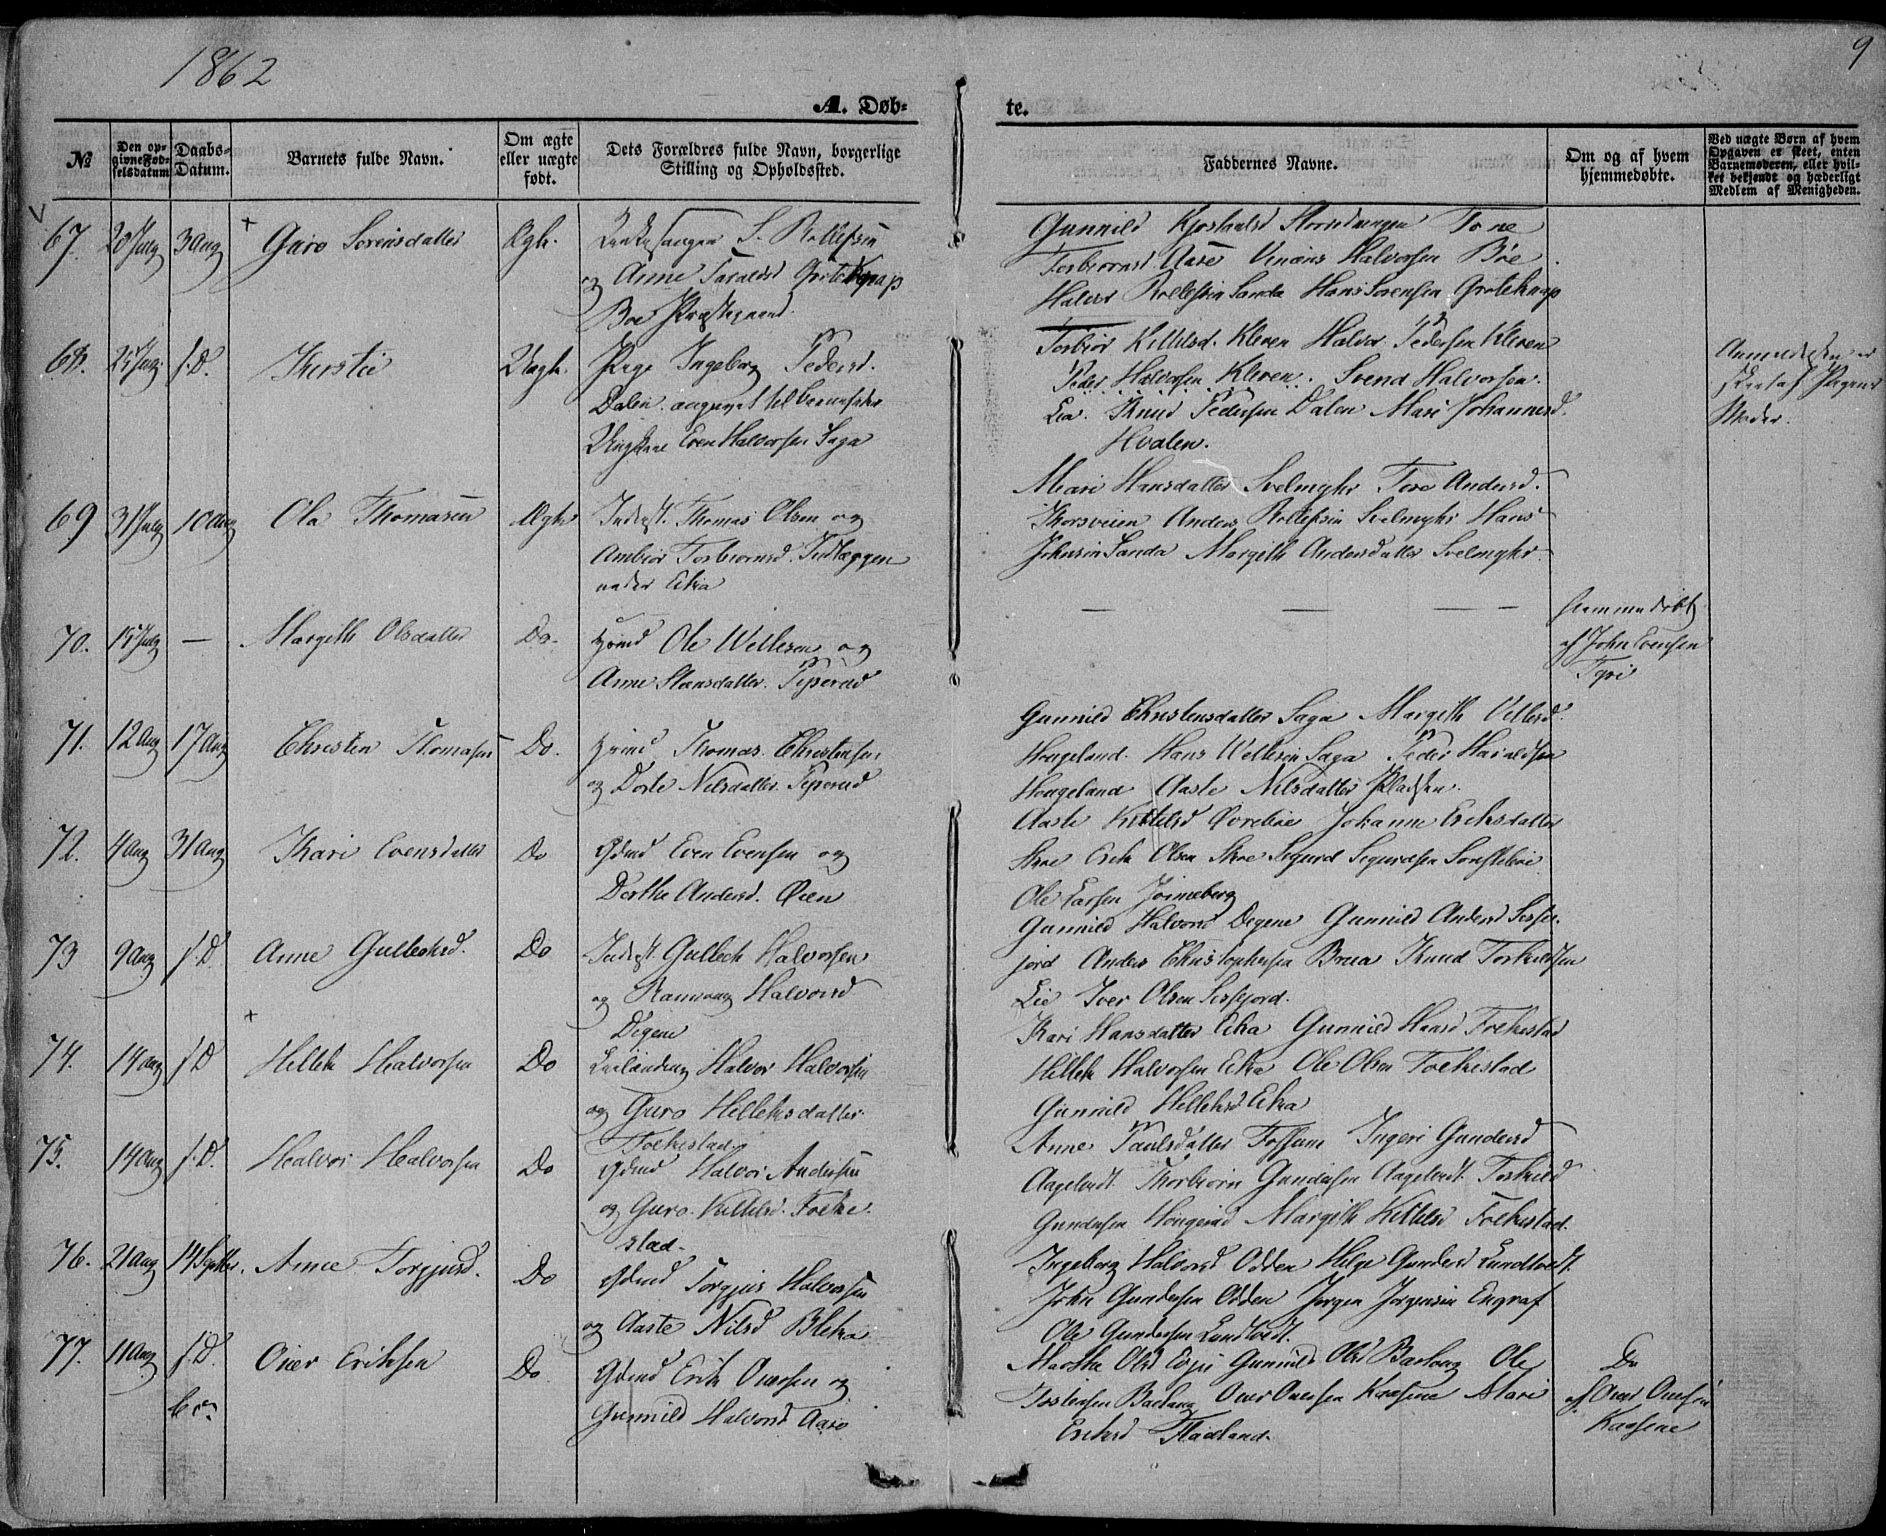 1862
9
A. Døb-
te.
№
Den op-
givne Fød-
selsdatum
Daabs-
Datum.
Barnets fulde Navn.
Om ægte
eller uægte
født.
Dets Forældres fulde Navn, borgerlige
Stilling og Opholdssted.
Faddernes Navne.
Om og af hvem
hjemmedøbte.
Ved uægte Børn af hvem
Opgaven er skeet, enten
Barnemoderen, eller hvil-
ket bekjendt og hæderligt
Medlem af Menigheden.
67. 20 July 3 Aug Guro Sørensdatter Ægte.
Kirkesanger S. Rollefsen
og Anne Taraldsd Groteknap
Bøe Præstegaard.
Gunnild Tone
Torbiørnsd. Aase Halvorsen Bøe
Halvor Rollefsen Sanda Hans Sørensen Groteknap
68. 25 July f. D. Kirstie Uægte.
Pige Ingeborg Pedersd.
Dalen. angivet til barnefader
Ungkarl Even Halvorsen Saga
Torbiør Kittelsd. Kleven Halvor Pedersen Kleven
Peder Halvorsen Kleven. Svend Halvorsen
Lia. Knud Pedersen Dalen Mari Johannesd.
Hvalen.
Anmeldelsen er
skeet af Pigens
Moder.
69 31 July 10 Aug Ola Thomasen Ægte
Inderst. Thomas Olsen og
Ambiør Torbiørnsd. Tudlæggen
under Eika
Mari Hansdatter Svelmyhr Tore Andersd.
Thorsveien Anders Rollefsen Svelmyhr Hans
Johnsen Sanda Margith Andersdatter Svelmyhr
70. 15 July — Margith Olsdatter Do.
Ole Wetlesen og
Anne Hansdatter. Teperud
— — — —
hjemmedøbt
af John Evensen
Tyri
71. 12 Aug 17 Aug Christen Thomasen Do.
Thomas Christensen
og Dorte Nilsdatter Teperud
Gunnild Christensdatter Saga Margith Vetlesd.
Haugeland. Hans Wetlesen Saga Peder Haraldsen
Haugeland Aaste Nilsdatter Pladsen.
72. 4 Aug 31 Aug Kari Evensdatter Do
Gdmd Even Evensen og
Dorthe Andersd. Øien
Aaste Kittelsd Øvrebøe Johanne Eriksdatter
Skoe Erik Olsen Skoe Sigurd Sigurdsen
Ole Larsen Jønneberg
73 9 Aug f. D. Anne Gulleiksd. Do
Inderst. Gulleik Halvorsen
og Ranvaug Halvorsd
Digene
Gunnild Halvorsd Digene Gunnild Andersd Sisfe-
jord Anders Christophersen Brua Knud Torkildsen
Lie Iver Olsen Sisfejord.
74. 14 Aug f. D Hellek Halvorsen Do
Leilænding Halvor Halvorsen
og Guro Helleksdatter
Folkestad
Kari Hansdatter Eika Gunnild Hansd Folkestad
Hellek Halvorsen Eika Ole Olsen Folkestad
Gunnild Helleksd Eika
75. 14 Aug f. D. Halvor Halvorsen Do
Gdmd Halvor Andersen
og Guro Kittelsd. Folke-
stad.
Anne Paulsdatter Fossum Ingeri Gundersd
Aagetvedt Thorbiørn Gundersen Aagetvedt Torkild
Gundersen Haugerud Margith Kittelsd Folkestad.
76. 21 Aug 14 Septbr. Anne Torgjusd. Do
Gdmd Torgjus Halvorsen
og Aaste Nilsd Bleka
Ingeborg Halvorsd Odden Helge Gundersd Lundtvedt.
John Gundersen Odden Jørgen Jørgensen Engraf
Ole Gundersen Lundtvedt.
77. 11 Aug f. D. Over Eriksen Do
Gdmd Erik Oversen og
Gunnild Halvorsd Aase
Martha Olsd Evju Gunnild Olsd Baslaug Ole
Torstensen Baslaug Over Oversen Kaasene Mari
Eriksd Fladland.
Do
af Over Oversen
Kaasene